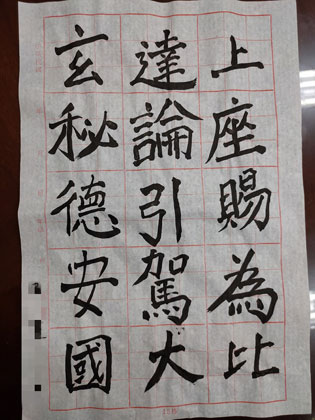 上座賜為比
達論引駕大
玄秘德安國